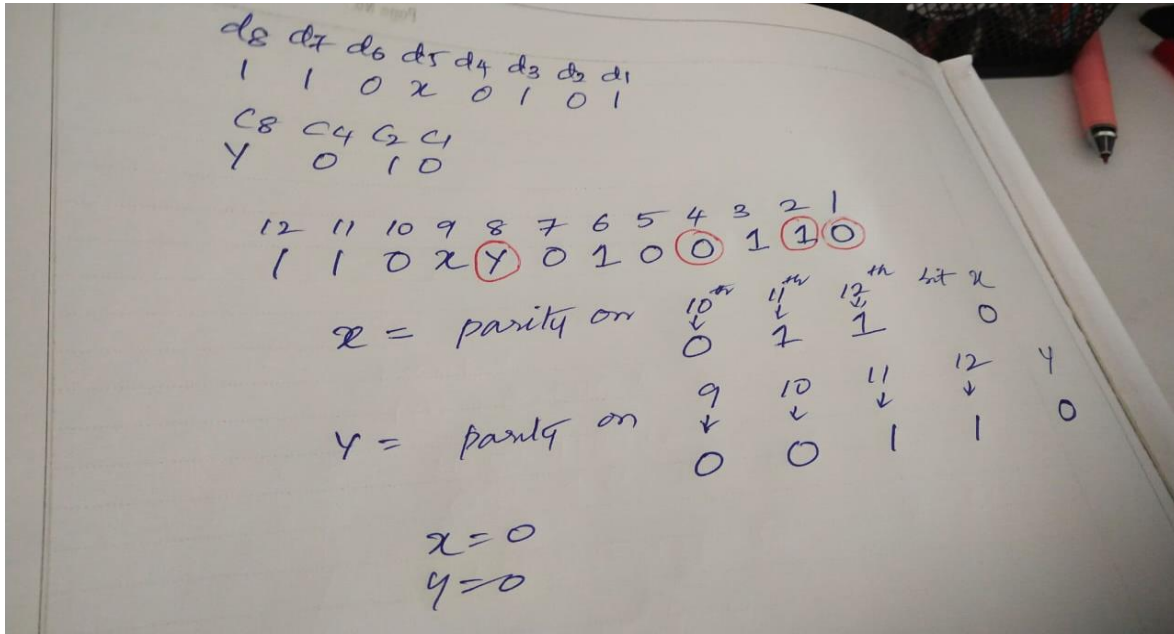 d8 d7 d6 d5 d4 d3 d2 d1
1 1 0 x 0 1 0 1
C8 C4 C2 C1
Y 0 1 0
12 11 10 9 8 7 6 5 4 3 2 1
1 1 0 x Y 0 1 0 0 1 1 0
x = parity on 10th 11th 12th bit x
0 1 1 0
9 10 11 12 Y
Y = parity on 0 0 1 1 0
x = 0
y = 0